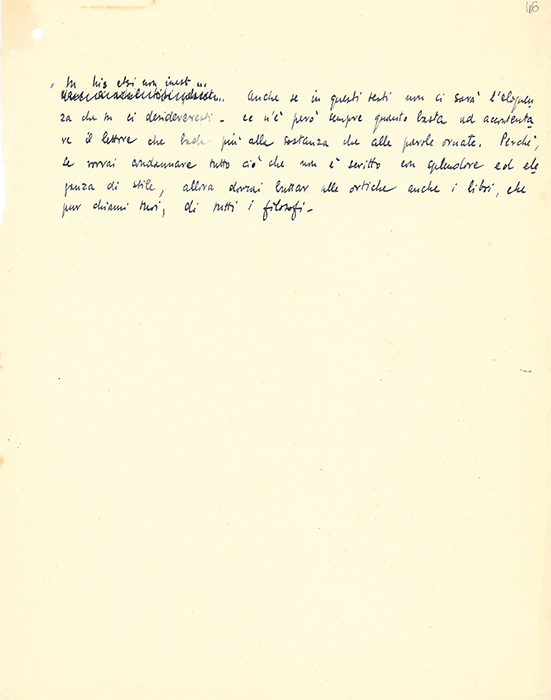 46
" In his etsi non inest ...
Anche se in questi testi non ci sarà l'eloquen
za che tu ci desidereresti - ce n'è però sempre quanto basta ad accontenta
re il lettore che bada più alla sostanza che alle parole ornate. Perché,
se vorrai condannare tutto ciò che non è scritto con splendore ed ele
ganza di stile, allora dovrai buttar alle ortiche anche i libri, che
pur chiami tuoi, di tutti i filosofi -